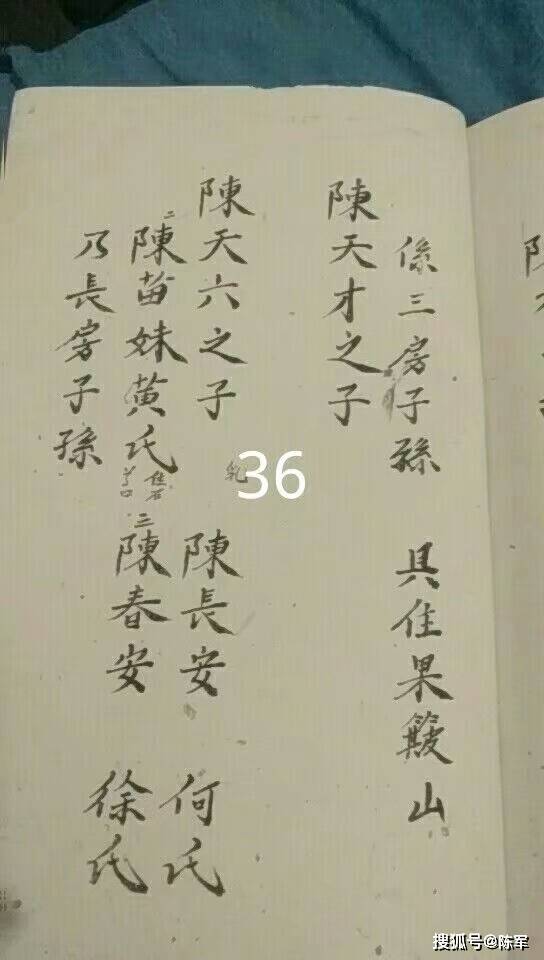 係三房子孫 具住果簸山
陳天才之子
陳天六之子
乳
陳長安 何氏
二
陳苗妹黄氏
住石
三
陳春安 徐氏
乃長房子孫
36
搜狐号@陈军